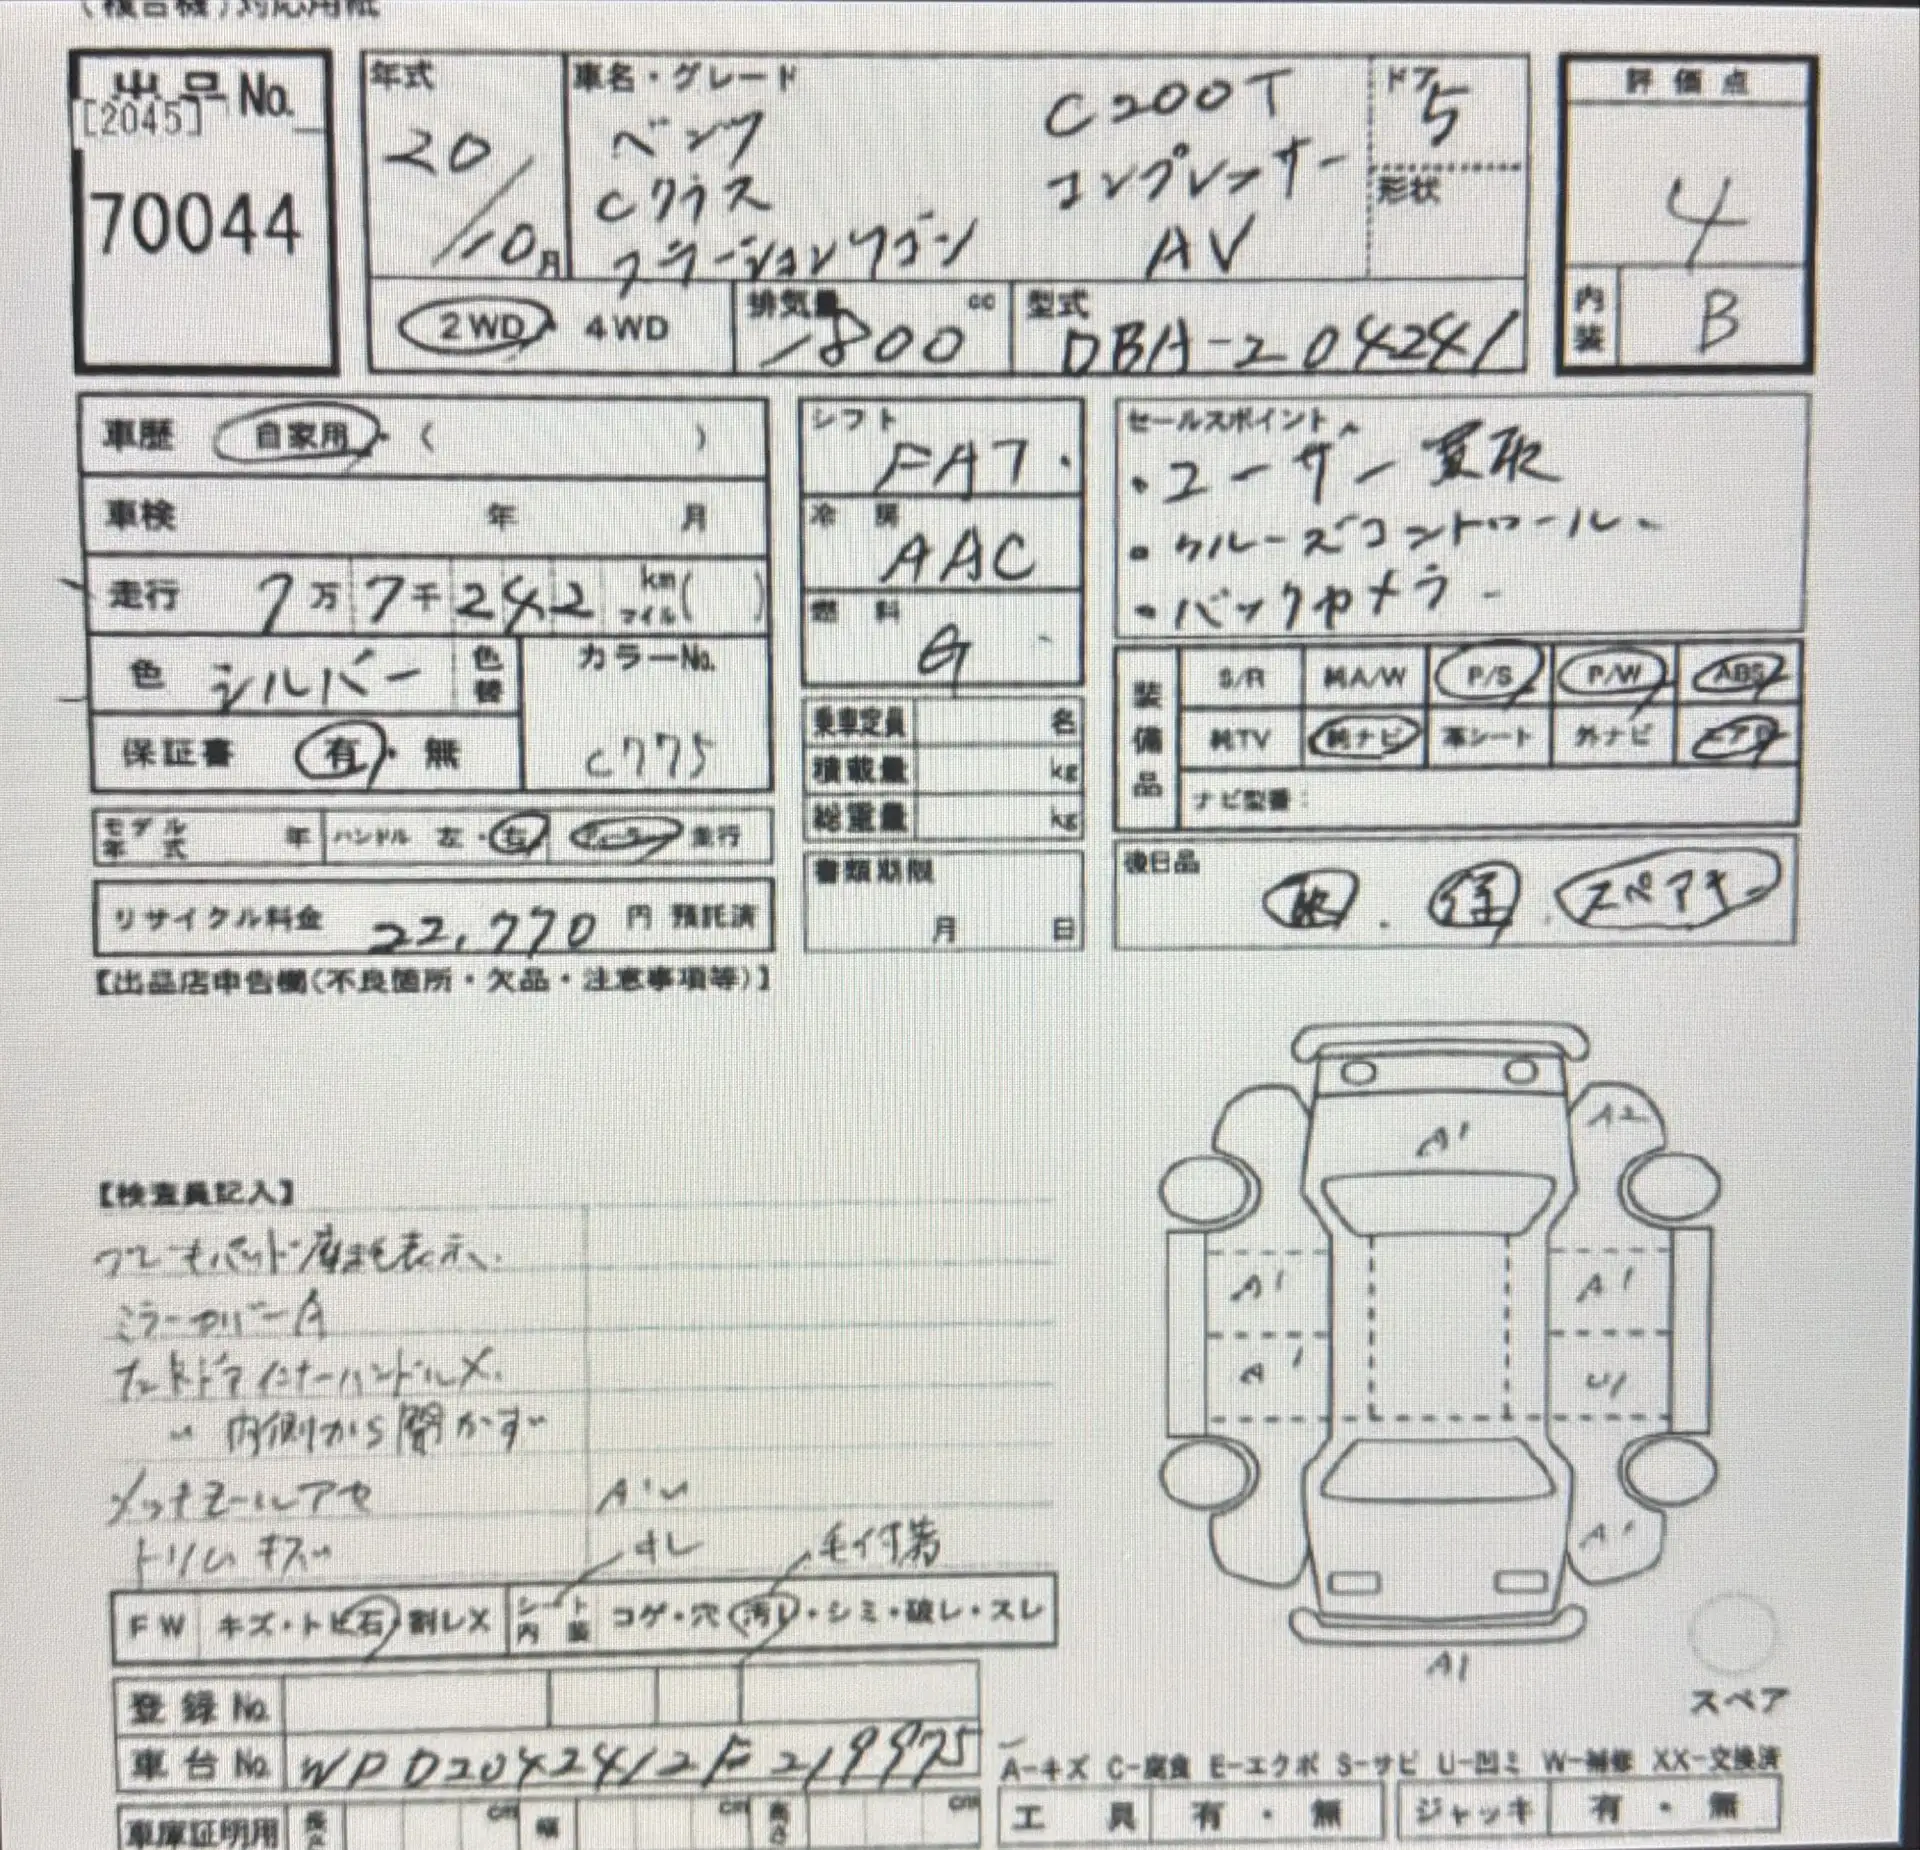 (複合機)対応用紙
出品No.
[2045]
70044
年式
20/10月
車名・グレード
ベンツ
Cクラス
ステーションワゴン
C200T
コンプレッサー
AV
ドア
5
形状
評価点
4
内装 B
2WD 4WD
排気量 1800 cc
型式 DBA-204241
車歴 自家用・( )
車検 年 月
走行 7万7千242 km マイル( )
色 シルバー 色替
カラーNo.
C775
保証書 有・無
シフト
FA7
冷房
AAC
燃料
G
セールスポイント
・ユーザー買取
・クルーズコントロール
・バックカメラ
装備品
S/R 純A/W P/S P/W ABS
純TV 純ナビ 革シート 外ナビ エアB
ナビ型番:
乗車定員 名
積載量 kg
総重量 kg
モデル年式 年 ハンドル 左・右 ディーラー 並行
書類期限
月 日
後日品
スペアキー
リサイクル料金 22,770 円 預託済
【出品店申告欄(不良箇所・欠品・注意事項等)】
【検査員記入】
ブレーキパッド摩耗表示
ミラーカバーA
インナーハンドルメ
〃 内側から開かず
メッキモールアセ
トリムキズ
スレ
毛付着
A1
A2
A1
A1
A1
U1
A1
A1
FW キズ・トビ石・割レX
シート内装 コゲ・穴・汚レ・シミ・破レ・スレ
登録No.
車台No. WDD2042412F219975
スペア
A-キズ C-腐食 E-エクボ S-サビ U-凹ミ W-補修 XX-交換済
車庫証明用 長さ cm 幅 cm 高さ cm
工具 有・無 ジャッキ 有・無